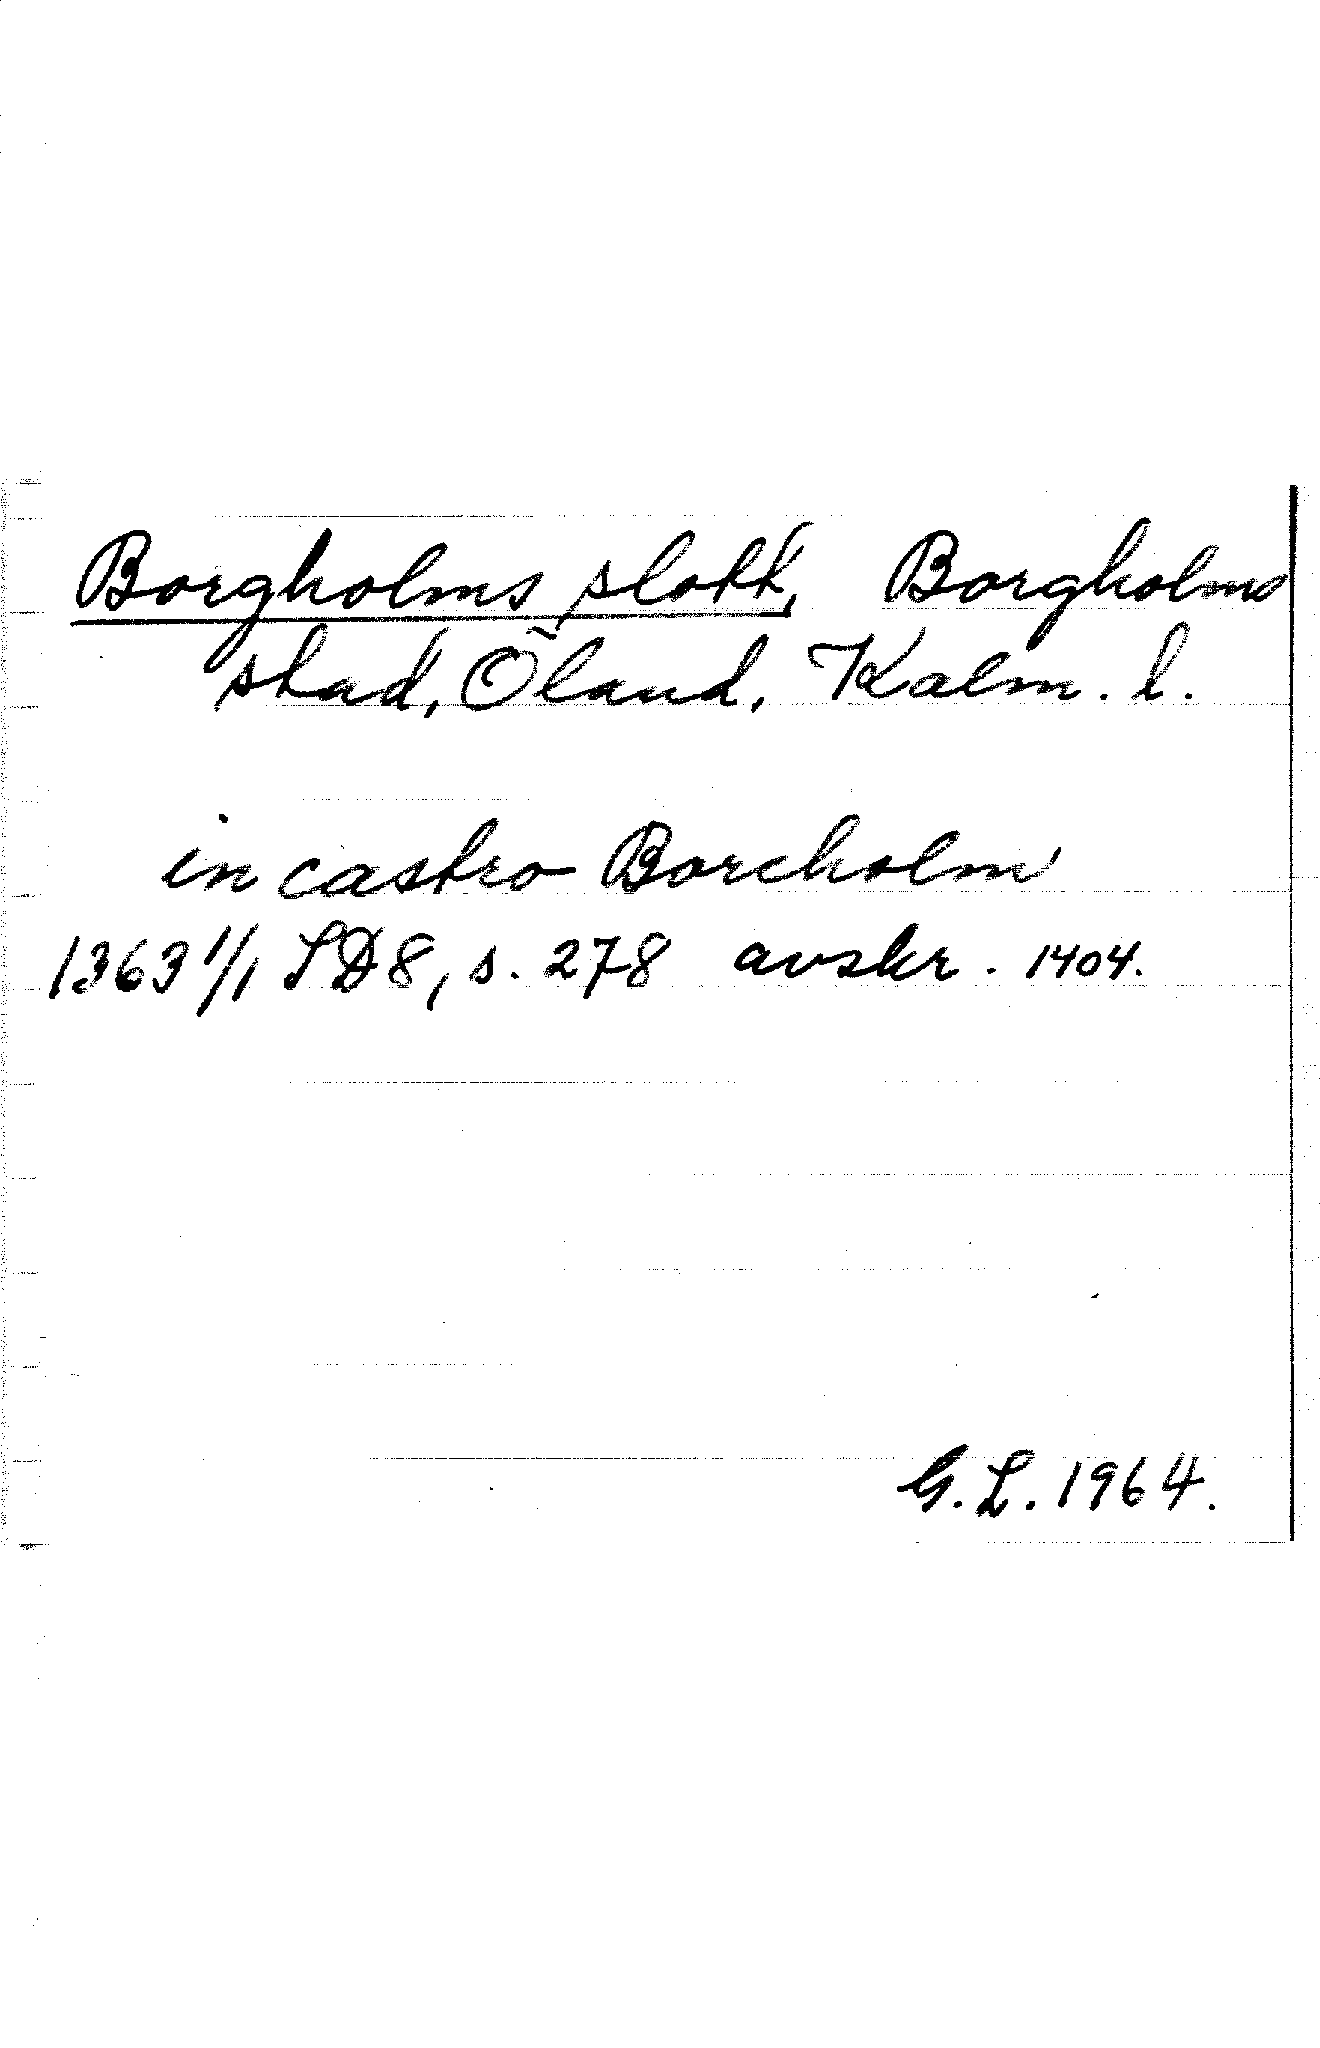 Borgholms slott, Borgholms
stad, Öland, Kalm. l.
in castro Borcholm
1363 1/1 SD 8, s. 278 avskr. 1404.
G. L. 1964.